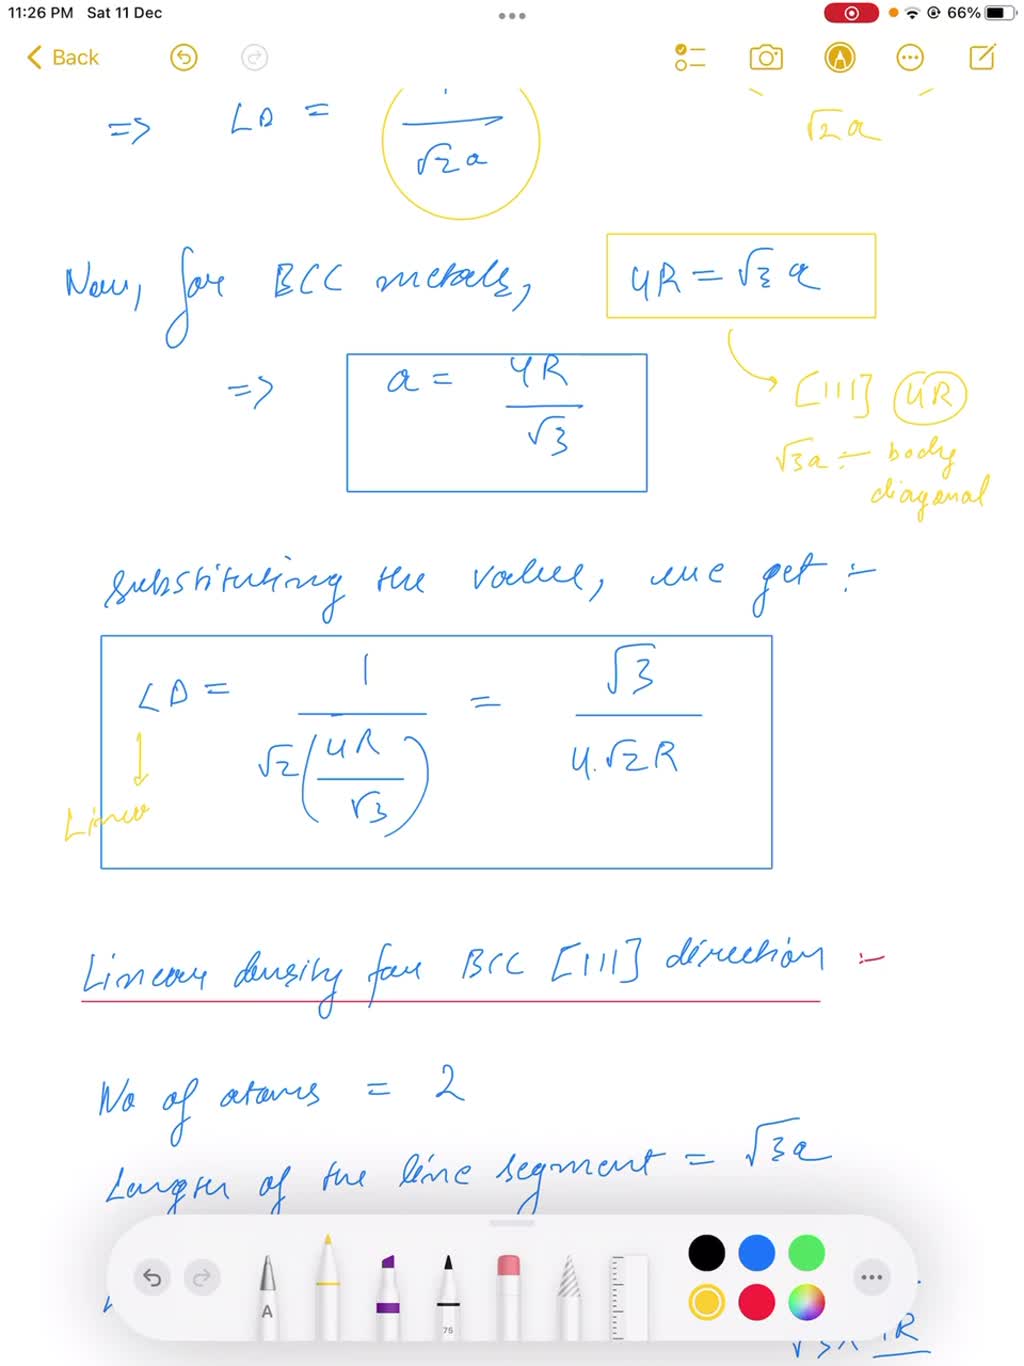 11:26 PM Sat 11 Dec 66%
Back
=> LD = 1/√2a
√2a
Now, for BCC metals, 4R = √3 a
=> a = 4R/√3
[111] 4R
√3a ÷ body
diagonal
substituting the value, we get :-
LD = 1/√2(4R/√3) = √3/4.√2R
Linea
Linear density for BCC [111] direction :-
No of atoms = 2
Length of the line segment = √3a
A
75
R